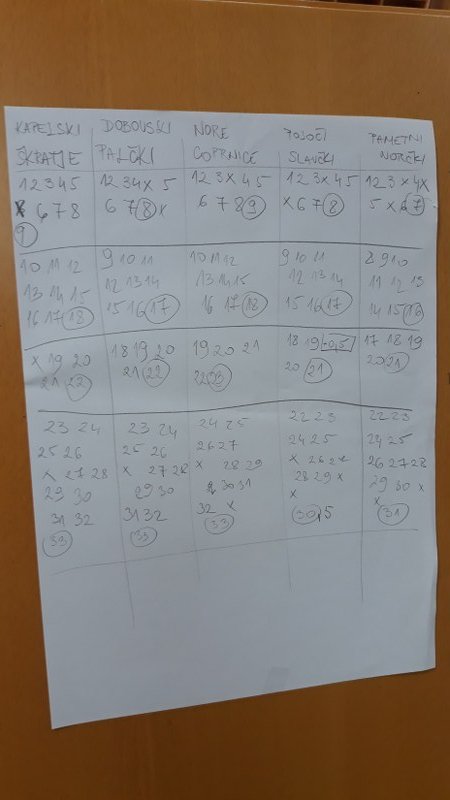 KAPELSKI DOBOVSKI NORE POJOČI PAMETNI
ŠKRATJE PALČKI COPRNICE SLAVČKI NORČKI
1 2 3 4 5 1 2 3 4 x 5 1 2 3 x 4 5 1 2 3 x 4 5 1 2 3 x 4 x
x 6 7 8 6 7 8 x 6 7 8 9 x 6 7 8 5 x 6 7
9
10 11 12 9 10 11 10 11 12 9 10 11 8 9 10
13 14 15 12 13 14 13 14 15 12 13 14 11 12 13
16 17 18 15 16 17 16 17 18 15 16 17 14 15 16
x 19 20 18 19 20 19 20 21 18 19 -0,5 17 18 19
21 22 21 22 22 23 20 21 20 21
23 24 23 24 24 25 22 23 22 23
25 26 25 26 26 27 24 25 24 25
x 27 28 x 27 28 x 28 29 x 26 27 26 27 28
29 30 29 30 30 31 28 29 x 29 30 x
31 32 31 32 32 x x x 31
33 33 33 30,5